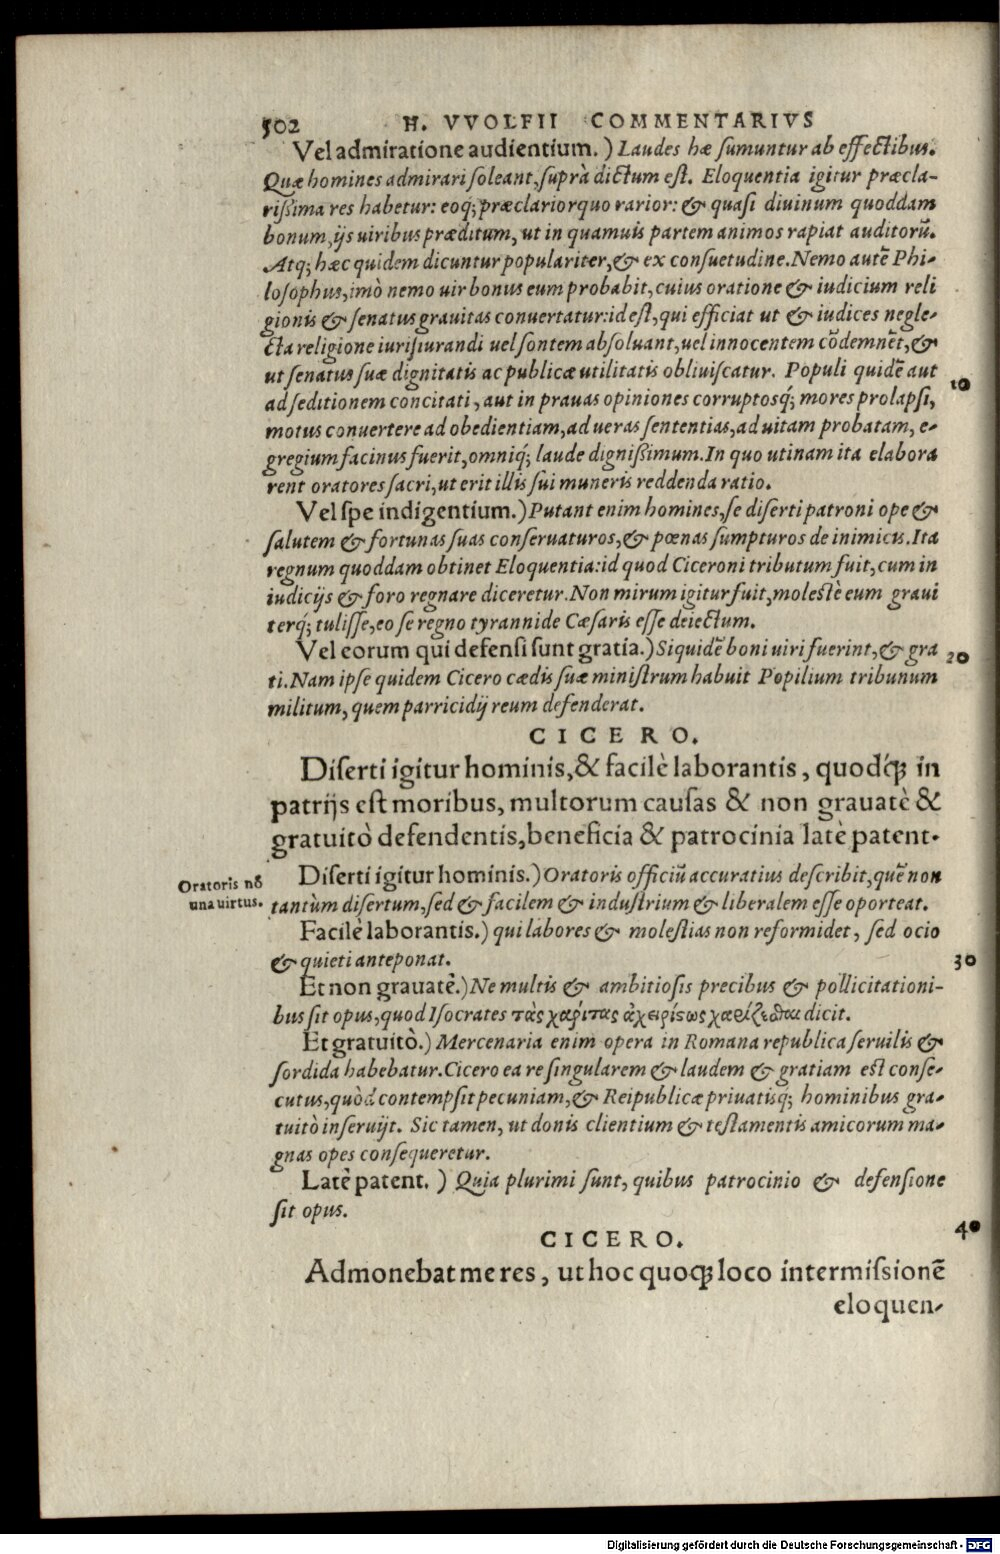 502 H. VVOLFII COMMENTARIVS
Vel admiratione audientium.) Laudes hæ sumuntur ab effectibus.
Quæ homines admirari soleant, suprà dictum est. Eloquentia igitur præcla-
rißima res habetur: eoq; præclarior quo rarior: & quasi diuinum quoddam
bonum, ijs uiribus præditum, ut in quamuis partem animos rapiat auditorũ.
Atq; hæc quidem dicuntur populariter, & ex consuetudine. Nemo autẽ Phi-
losophus, imò nemo uir bonus eum probabit, cuius oratione & iudicium reli
gionis & senatus grauitas conuertatur: id est, qui efficiat ut & iudices negle-
cta religione iurisiurandi uel sontem absoluant, uel innocentem cõdemnẽt, &
ut senatus suæ dignitatis ac publicæ utilitatis obliuiscatur. Populi quidẽ aut
10
ad seditionem concitati, aut in prauas opiniones corruptosq́; mores prolapsi,
motus conuertere ad obedientiam, ad ueras sententias, ad uitam probatam, e-
gregium facinus fuerit, omniq́; laude dignißimum. In quo utinam ita elabora
rent oratores sacri, ut erit illis sui muneris reddenda ratio.
Vel spe indigentium.) Putant enim homines, se diserti patroni ope &
salutem & fortunas suas conseruaturos, & pœnas sumpturos de inimicis. Ita
regnum quoddam obtinet Eloquentia: id quod Ciceroni tributum fuit, cum in
iudicijs & foro regnare diceretur. Non mirum igitur fuit, molestè eum graui
terq́; tulisse, eo se regno tyrannide Cæsaris esse deiectum.
Vel eorum qui defensi sunt gratia.) Siquidẽ boni uiri fuerint, & gra
20
ti. Nam ipse quidem Cicero cædis suæ ministrum habuit Popilium tribunum
militum, quem parricidij reum defenderat.
CICERO.
Diserti igitur hominis, & facilè laborantis, quodq́; in
patrijs est moribus, multorum causas & non grauatè &
gratuitò defendentis, beneficia & patrocinia latè patent.
Oratoris nõ
una uirtus.
Diserti igitur hominis.) Oratoris officiũ accuratius describit, quẽ non
tantùm disertum, sed & facilem & industrium & liberalem esse oporteat.
Facilè laborantis.) qui labores & molestias non reformidet, sed ocio
& quieti anteponat.
30
Et non grauatè.) Ne multis & ambitiosis precibus & pollicitationi-
bus sit opus, quod Isocrates τὰς χάριτας ἀχαρίστως χαρίζεσθαι dicit.
Et gratuitò.) Mercenaria enim opera in Romana republica seruilis &
sordida habebatur. Cicero ea re singularem & laudem & gratiam est conse-
cutus, quòd contempsit pecuniam, & Reipublicæ priuatisq́; hominibus gra-
tuitò inseruijt. Sic tamen, ut donis clientium & testamentis amicorum ma-
gnas opes consequeretur.
Latè patent.) Quia plurimi sunt, quibus patrocinio & defensione
sit opus.
CICERO.
40
Admonebat me res, ut hoc quoq; loco intermissionẽ
eloquen-
Digitalisierung gefördert durch die Deutsche Forschungsgemeinschaft - DFG